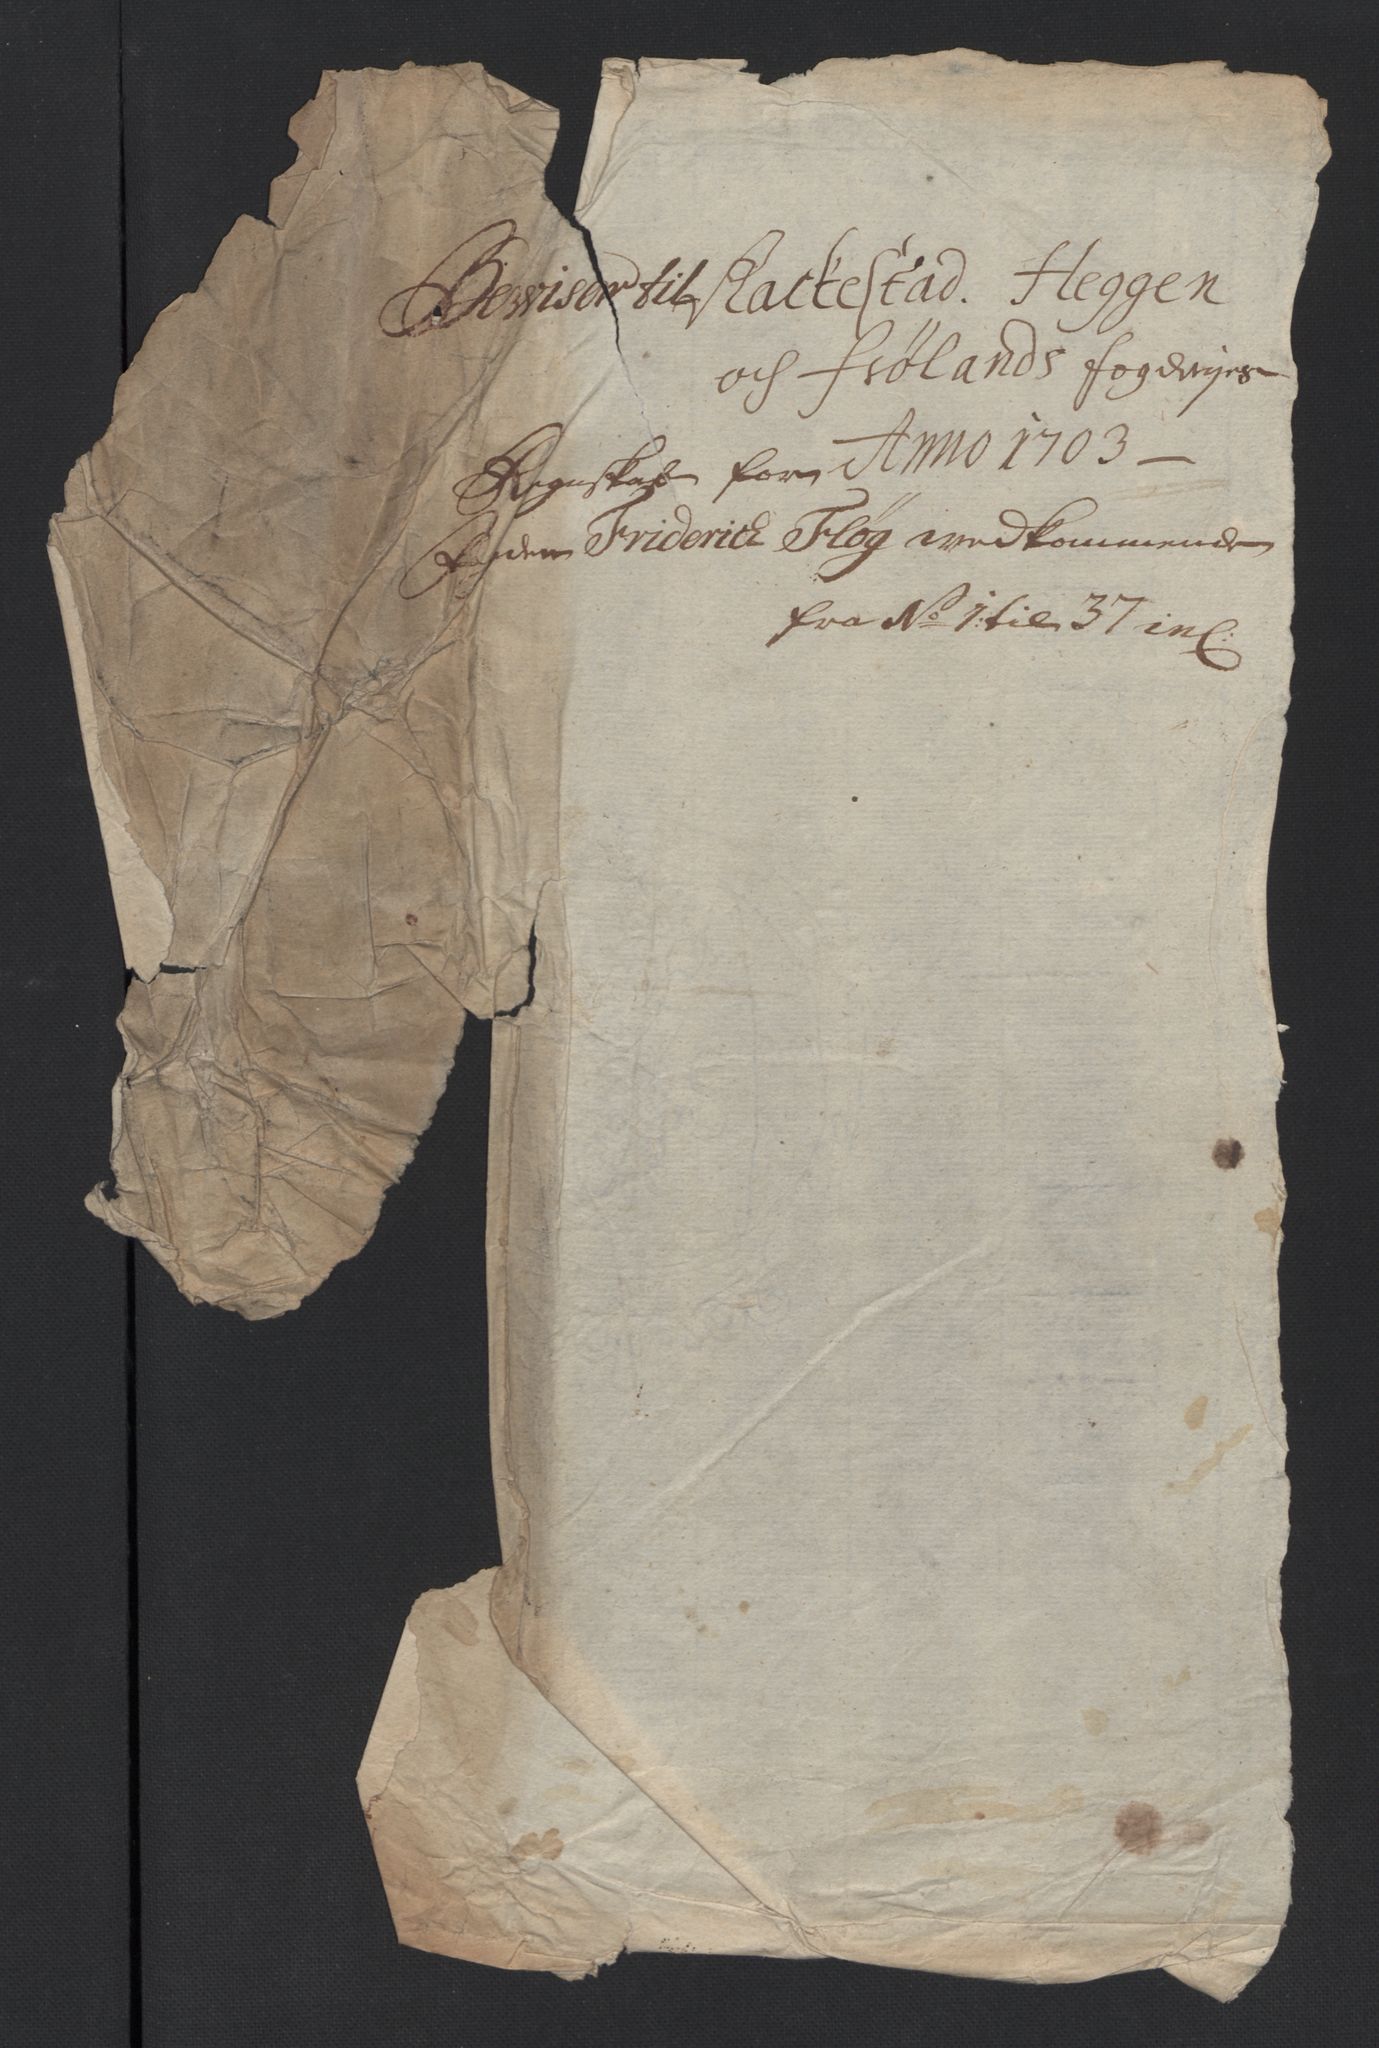 Bewiser til Rackestad. Heggen
och Frølands fogderijes
Regnskab for Anno 1703 –
Fogden Friderich Fløg wedkommende
fra No 1: til 37 incl: